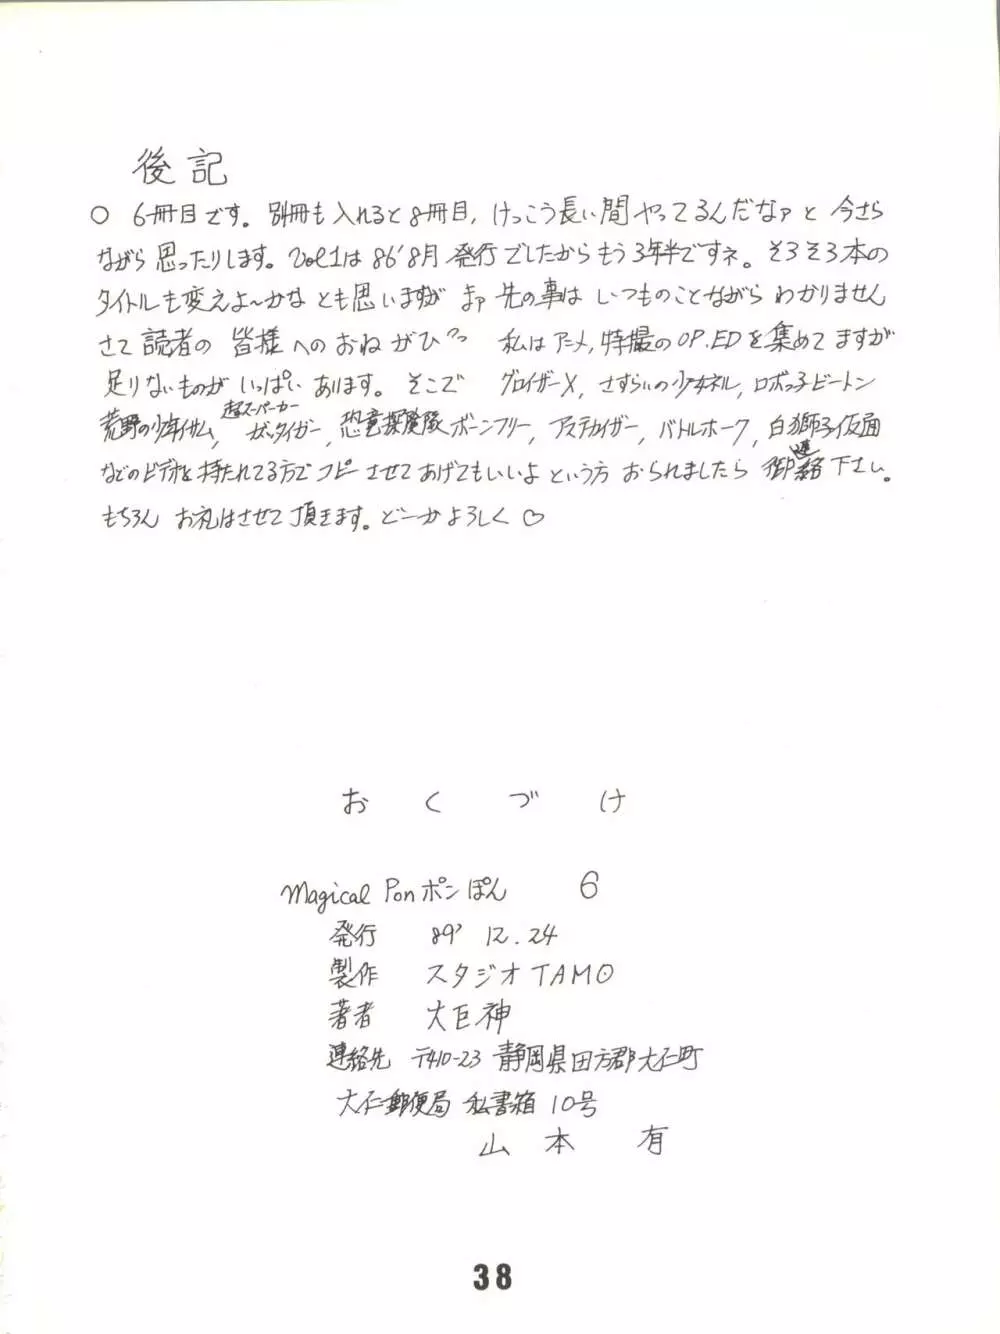 後記
○ 6冊目です。別冊も入れると8冊目、けっこう長い間やってるんだなァと今さら
ながら思ったりします。Vol1は86'8月発行でしたからもう3年半ですネ。そろそろ本の
タイトルも変えよ〜かなとも思いますが まァ先の事は いつものことながらわかりません
さて読者の皆様へのおねがひ〜つ 私はアニメ,特撮のOP.EDを集めてますが
足りないものがいっぱいあります。そこで グロイザーX,さすらいの少女ネル,ロボっ子ビートン
荒野の少年イサム,超スーパーカーガッタイガー,恐竜探険隊ボーンフリー,アステカイザー,バトルホーク,白獅子仮面
などのビデオを持たれてる方でコピーさせてあげてもいいよという方おられましたら御連絡下さい。
もちろん お礼はさせて頂きます。どーかよろしく♡
おくづけ
Magical Ponポンぽん 6
発行 89' 12.24
製作 スタジオTAMO
著者 大巨神
連絡先 〒410-23 静岡県田方郡大仁町
大仁郵便局 私書箱10号
山本 有
38